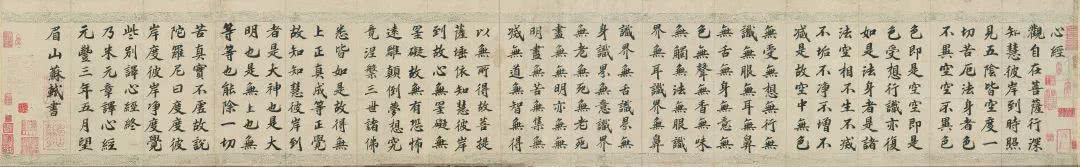 心經
觀自在菩薩行深
知慧彼岸到時照
見五陰皆空度一
切苦厄法身者色
不異空空不異色
色即是空空即是
色受想行識亦復
如是法身者是諸
法空相不生不滅
不垢不淨不增不
減是故空中無色
無受無想無行無
識無眼無耳無鼻
無舌無身無意無
色無聲無香無味
無觸無法無眼識
界無耳識界無鼻
識界無舌識界無
身識界無意識界
無老無死無老死
盡無無明亦無無
明盡無苦無集無
滅無道無智無得
以無所得故菩提
薩埵依知慧彼岸
到故心無罣礙無
罣礙故無有恐怖
遠離顛倒夢想究
竟涅槃三世諸佛
悉皆如是故得無
上正真成等正覺
故知知慧彼岸到
者是大神也是大
明也是無上也是無
等等也能除一切
苦真實不虛故說
陀羅尼曰度度彼
岸度彼岸淨度覺
些別譯心經終
乃朱元章譯心經
元豐三年五月望
眉山蘇軾書